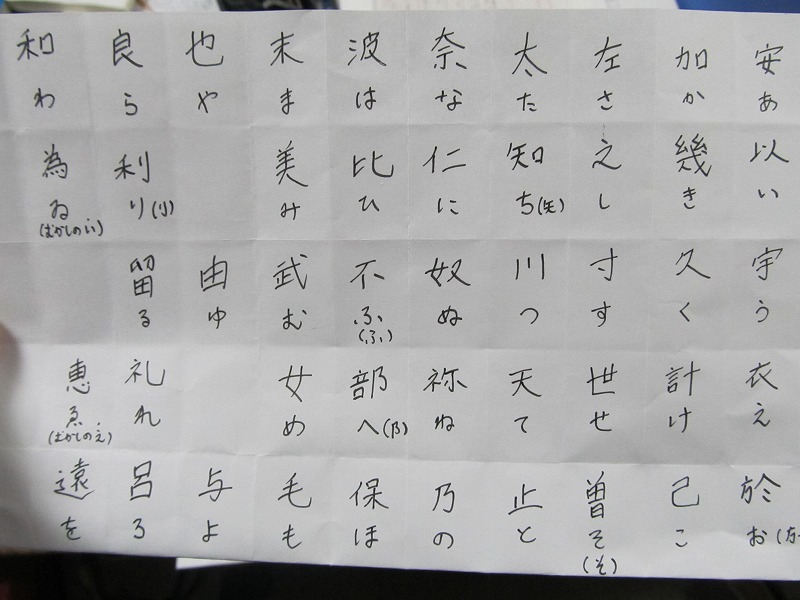 和 良 也 末 波 奈 太 左 加 安
わ ら や ま は な た さ か あ
為 利 美 比 仁 知 之 幾 以
ゐ り み ひ に ち し き い
(むかしのい)
留 由 武 不 奴 川 寸 久 宇
る ゆ む ふ ぬ つ す く う
(ふ)
恵 礼 女 部 祢 天 世 計 衣
ゑ れ め へ(阝) ね て せ け え
(むかしのえ)
遠 呂 与 毛 保 乃 止 曽 己 於
を ろ よ も ほ の と そ こ お
(そ)